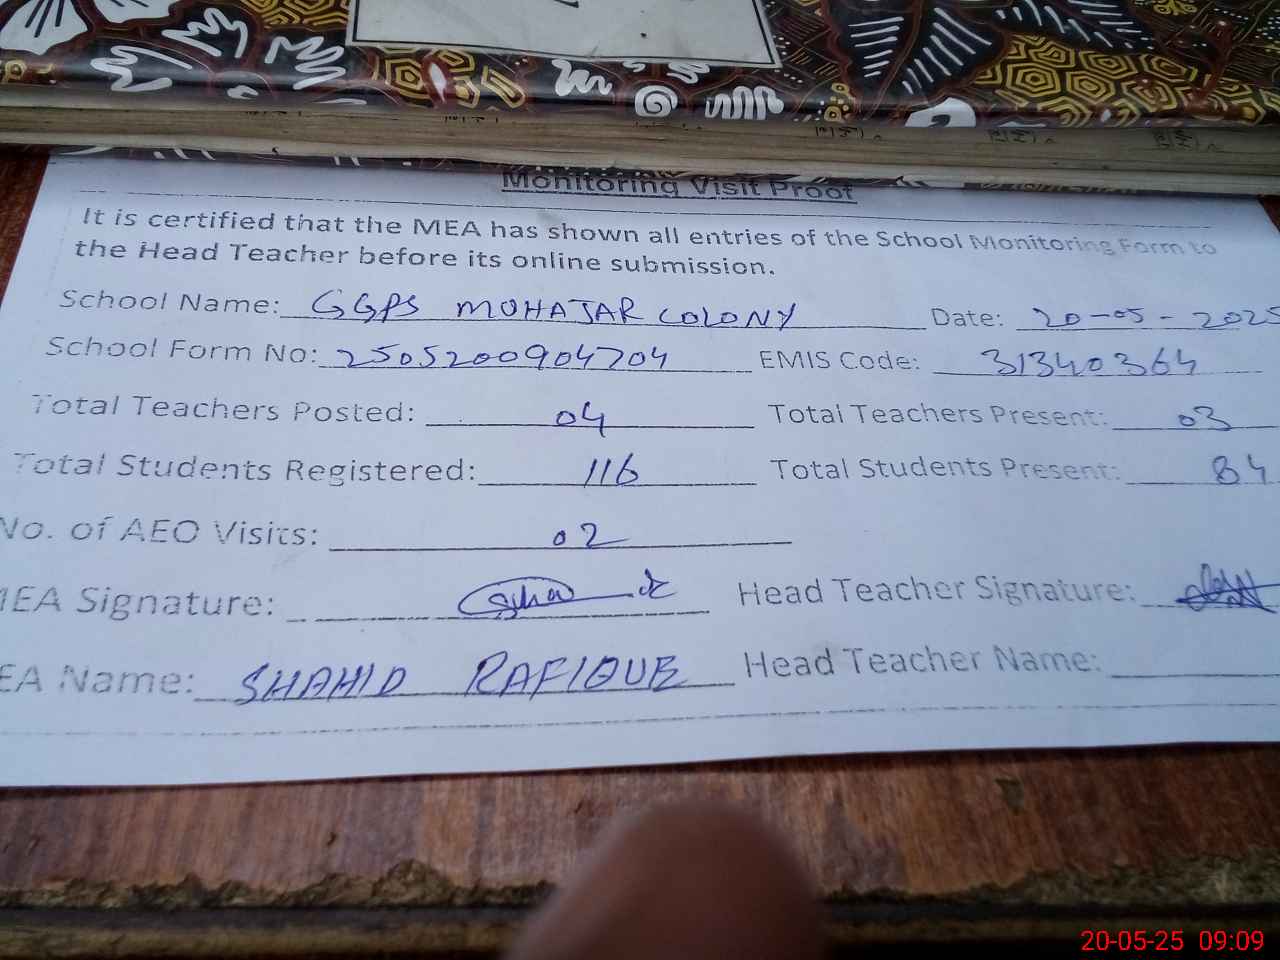 Monitoring Visit Proof
It is certified that the MEA has shown all entries of the School Monitoring Form to
the Head Teacher before its online submission.
School Name: GGPS MOHAJAR COLONY Date: 20-05-2025
School Form No: 2505200904704 EMIS Code: 31340364
Total Teachers Posted: 04 Total Teachers Present: 03
Total Students Registered: 116 Total Students Present: 84
No. of AEO Visits: 02
MEA Signature: Head Teacher Signature:
EA Name: SHAHID RAFIQUE Head Teacher Name:
20-05-25 09:09